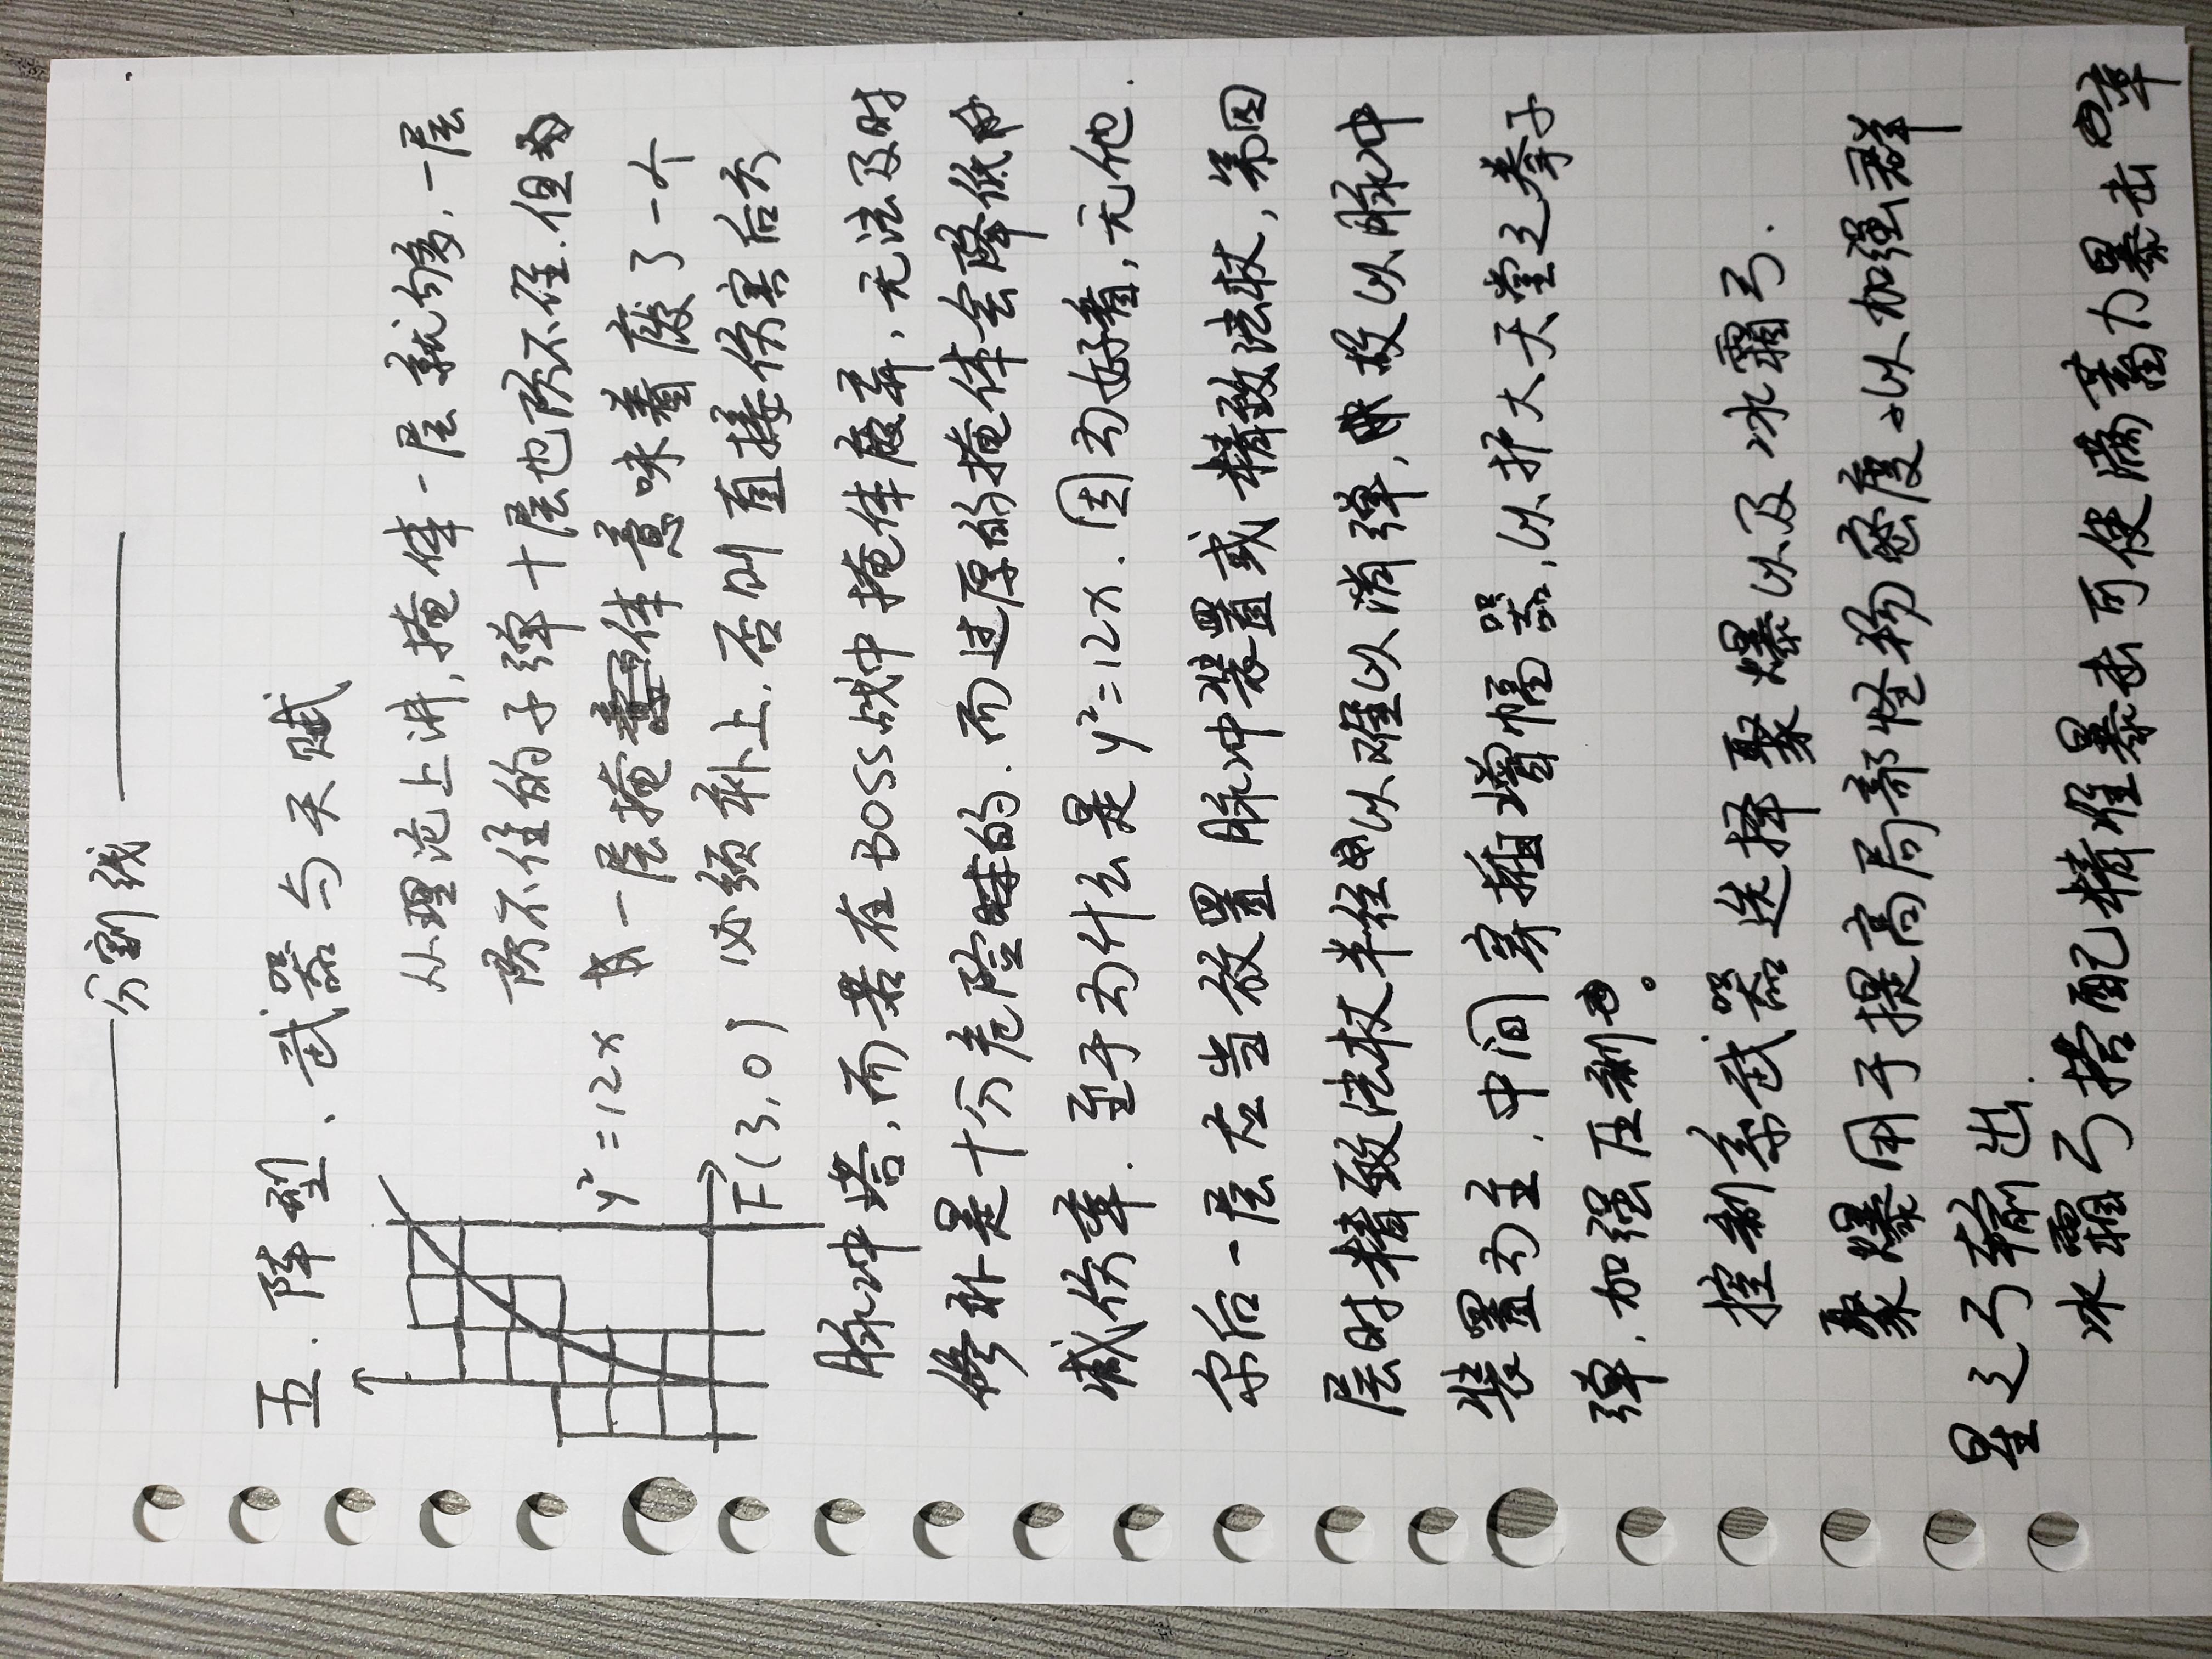 分割线
五、阵型、武器与天赋
从理论上讲，掩体一层就够，一层
防不住的子弹十层也防不住．但
y²=12x 一层掩体意味着废了一个
F(3,0) 必须补上，否则直接伤害后六
脉冲塔，而若在BOSS战中掩体废弃，无法及时
修补是十分危险的．而过厚的掩体会降低
减伤率．至于为什么是y²=12x．因为好看，无他．
尔后一层应当放置脉冲装置或精致法杖，第四
层时精致法杖半径以难以消弹，故以脉冲
装置为主，中间穿插增幅器，以护大天堂之拳子
弹，加强压制。
控制系武器选择聚爆以及冰霜弓．
聚爆用于提高局部怪物密度以加强群
星之弓输出．
冰霜弓搭配精准暴击可使满蓄力暴击率